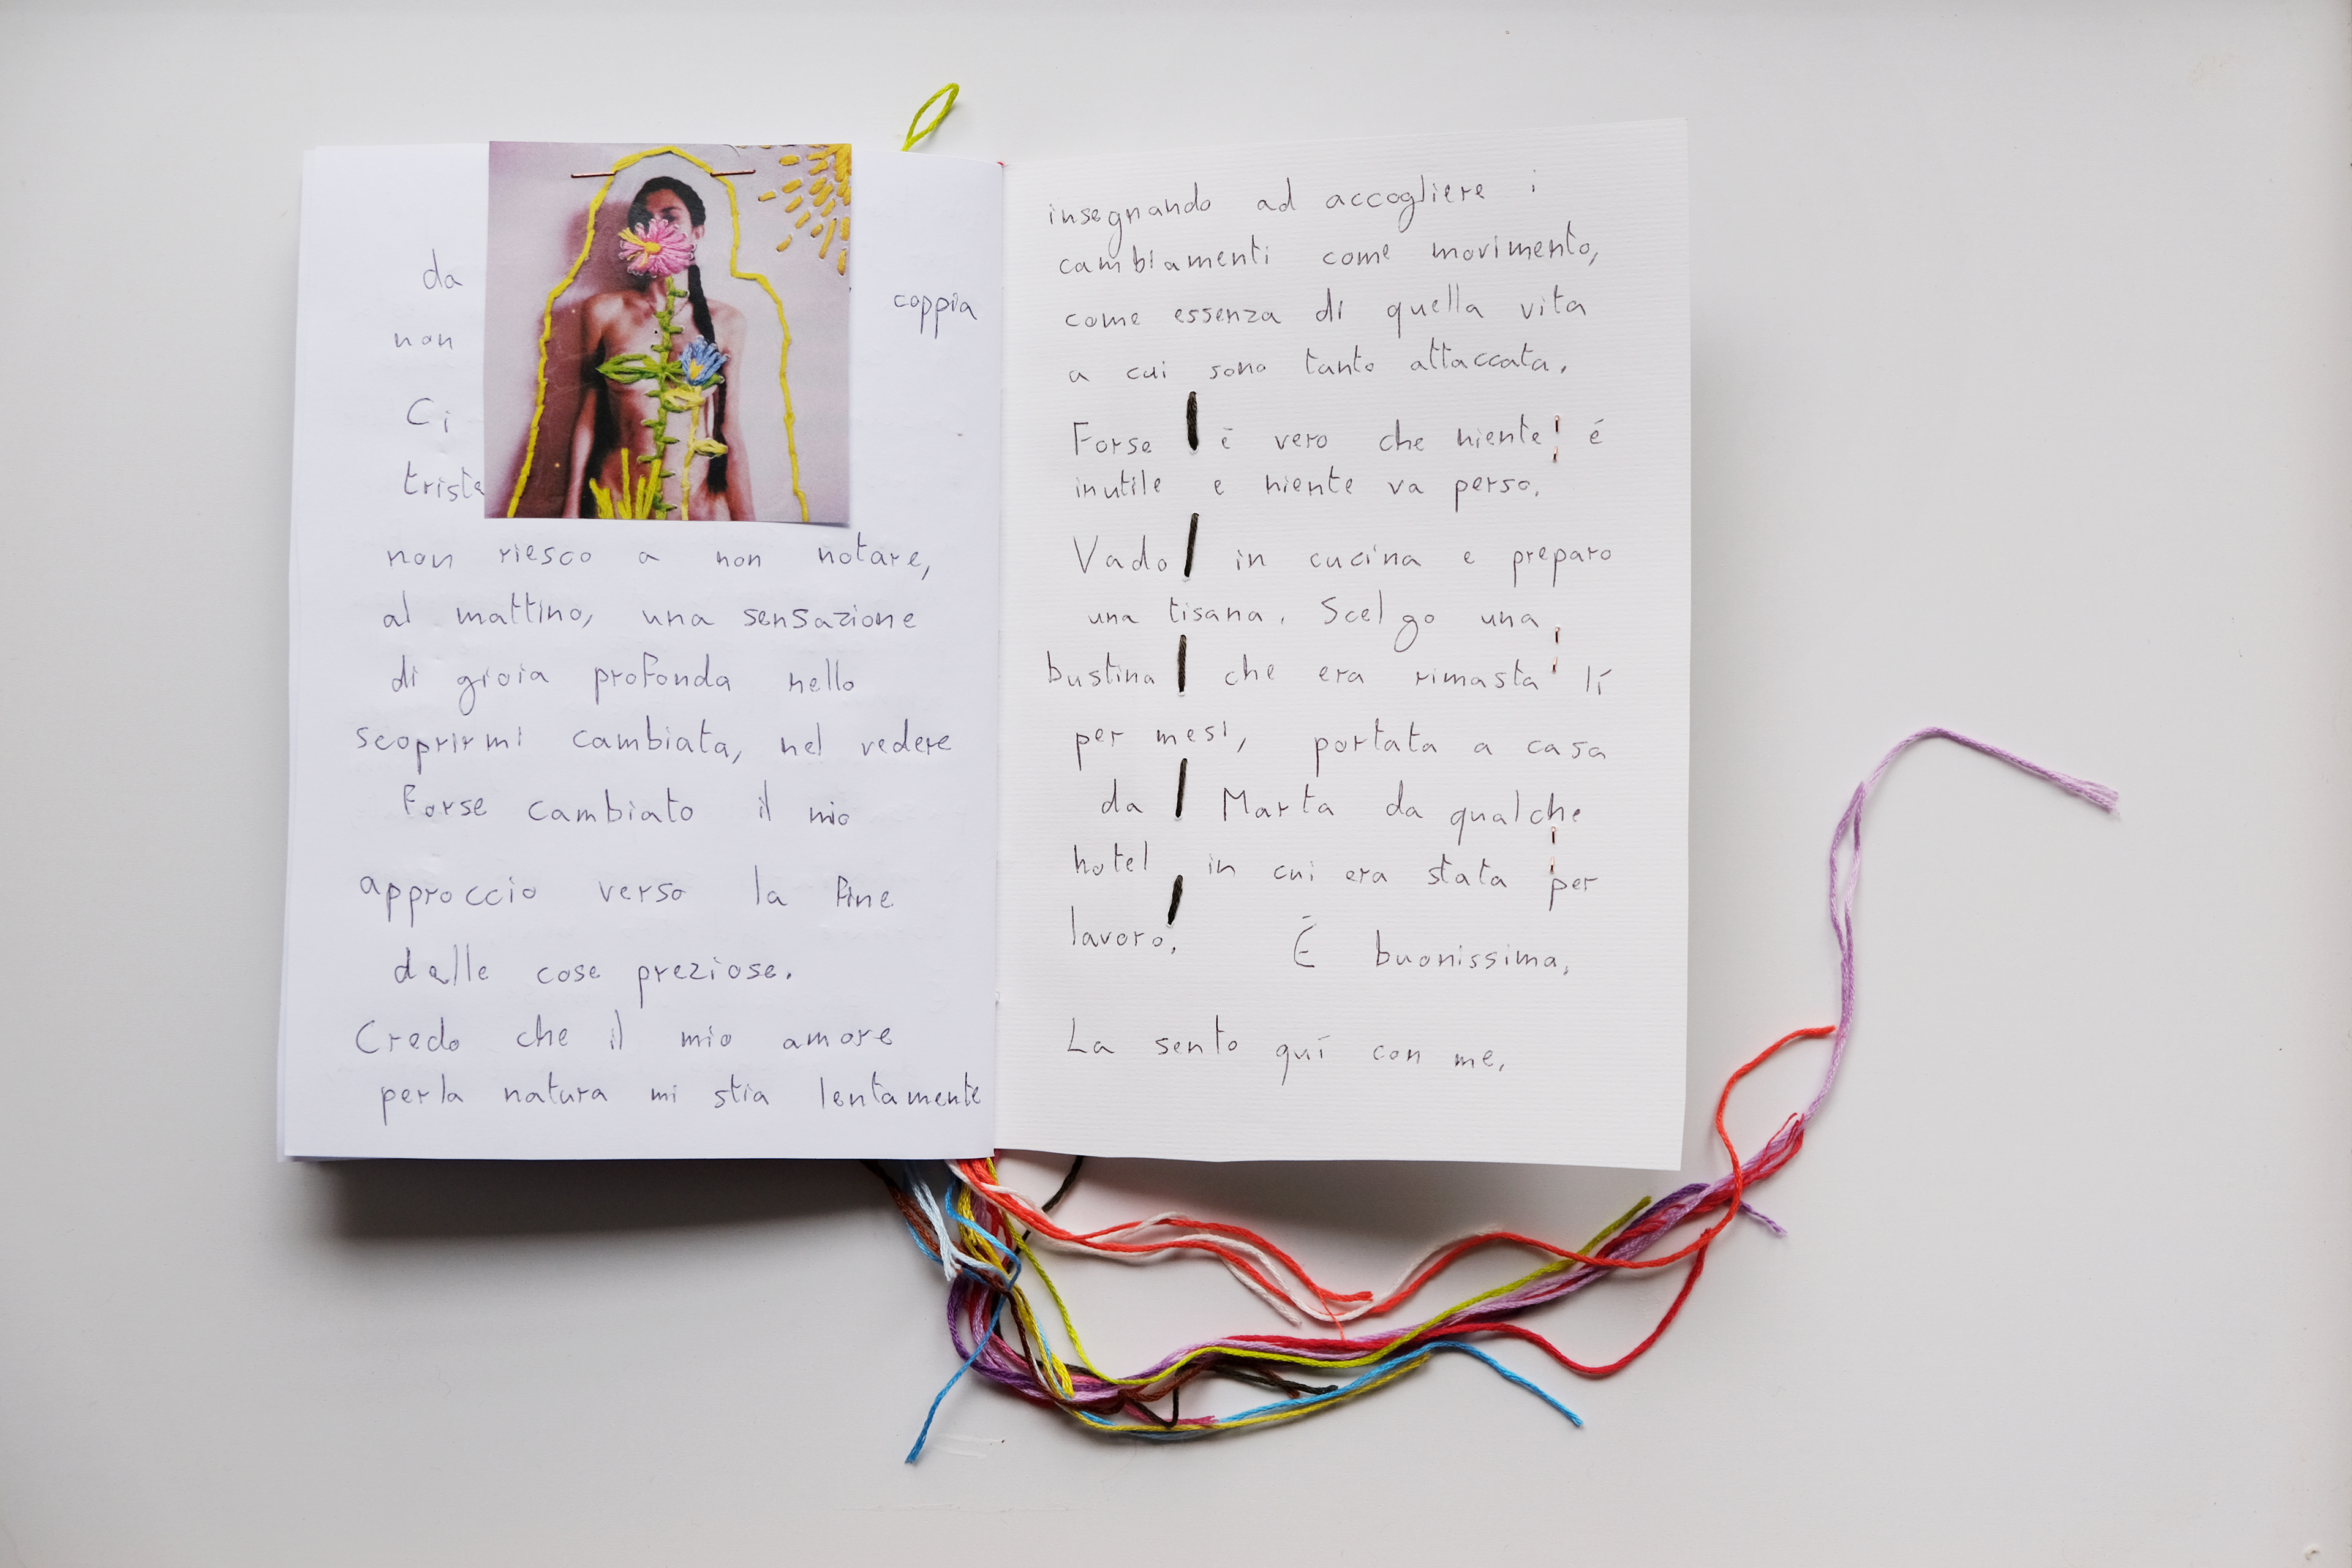 da coppia
non
Ci
triste
non riesco a non notare,
al mattino, una sensazione
di gioia profonda nello
scoprirmi cambiata, nel vedere
Forse cambiato il mio
approccio verso la fine
delle cose preziose.
Credo che il mio amore
per la natura mi stia lentamente
insegnando ad accogliere i
cambiamenti come movimento,
come essenza di quella vita
a cui sono tanto attaccata.
Forse è vero che niente é
inutile e niente va perso.
Vado in cucina e preparo
una tisana. Scelgo una
bustina che era rimasta lí
per mesi, portata a casa
da Marta da qualche
hotel in cui era stata per
lavoro. É buonissima,
La sento quí con me.